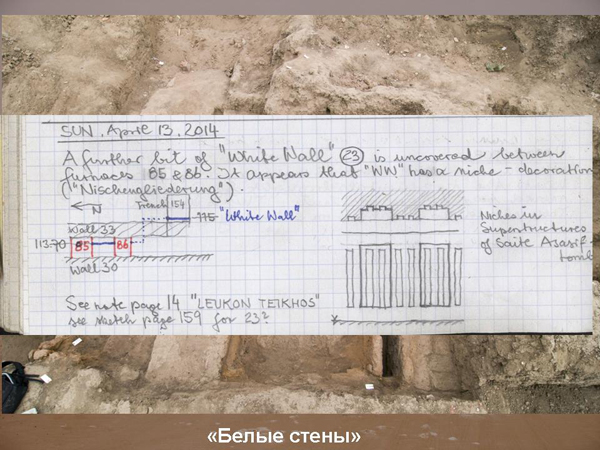 SUN. April 13. 2014
A further bit of "White Wall" 23 is uncovered between
furnaces 85 & 86. It appears that "WW" has a niche-decoration
("Nischengliederung").
N
Trench 154
115 "White Wall"
Wall 33
113.70
85
86
Wall 30
Niches in
Superstructures
of Saite Asasif-
tomb
See note page 14 "LEUKON TEIKHOS"
see sketch page 159 for 23?
«Белые стены»